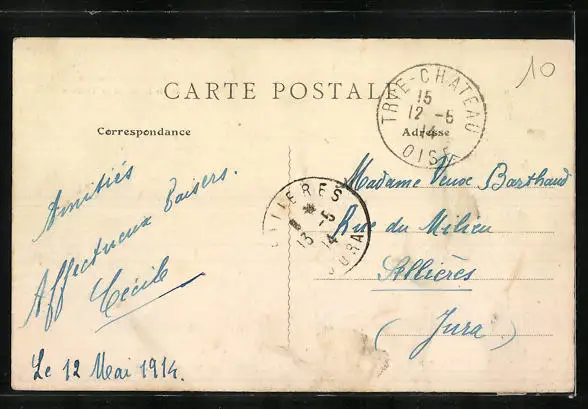 CARTE POSTALE
Correspondance
Amitiés
Affectueux baisers.
Cécile
Le 12 Mai 1914.
10
TRIE-CHATEAU
15
12 -5
14
OISE
Adresse
Madame Veuve Barthaud
Rue du Milieu
Sellières
(Jura)
LLIERES
* -5
13 14
JURA